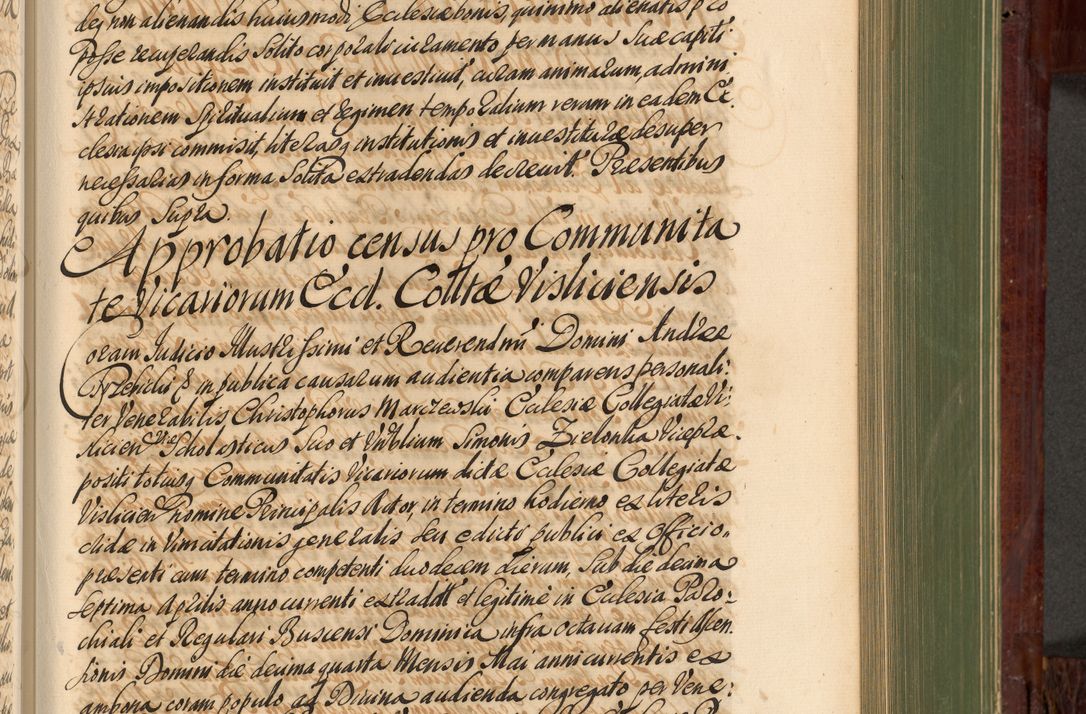 deq non alienandis huiusmodi Ecclesiæ bonis, quinimo alienatis pro
Posse recuperandis Solito corporali iuramento per manus Suæ capiti
ipsius impositionem instituit et inuestiuit, curam animarum, admini
strationem Spiritualium et Regimen temporalium rerum in eadem Ec
clesia ipsi commisit, literasq institutionis et inuestituræ desuper
necessarias in forma Solita extradendas decreuit. Præsentibus
quibus Supra.
Approbatio census pro Communita
te Vicariorum Eccl. Colltæ Visliciensis
Coram Judicio Illustrissimi et Reuerendmi Domini Andreæ
Przebicki in publica causarum audientia comparens personali:
ter Venerabilis, Christophorus Marczewski Ecclesiæ Collegiatæ Vi:
slicien Scholasticus Suo et Vnblium Simonis Zielonka Viceptæ.
positi totiusq Communitatis Vicariorum dictæ Ecclesiæ Collegiatæ
Vislicien nomine Principalis Actor, in termino hodierno ex literis
cridæ in Vim citationis generalis Seu edicti publici ex officio.
præsenti cum termino competenti duodecem dierum, Sub die decima
Septima Aprilis anno currenti extraddit et legitime in Ecclesia Paro:
chiali et Regulari Buscensi Dominica infra octauam festi Ascen
sionis Domini die decima quarta Mensis Mai anni currentis ex
ambona coram populo ad Diuina audienda congregato per Vene: